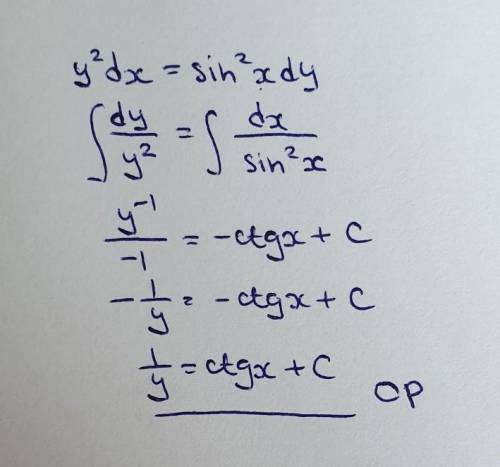 y²dx = sin²x dy
∫ dy/y² = ∫ dx/sin²x
y⁻¹/-1 = -ctgx + C
- 1/y = -ctgx + C
1/y = ctgx + C
OP